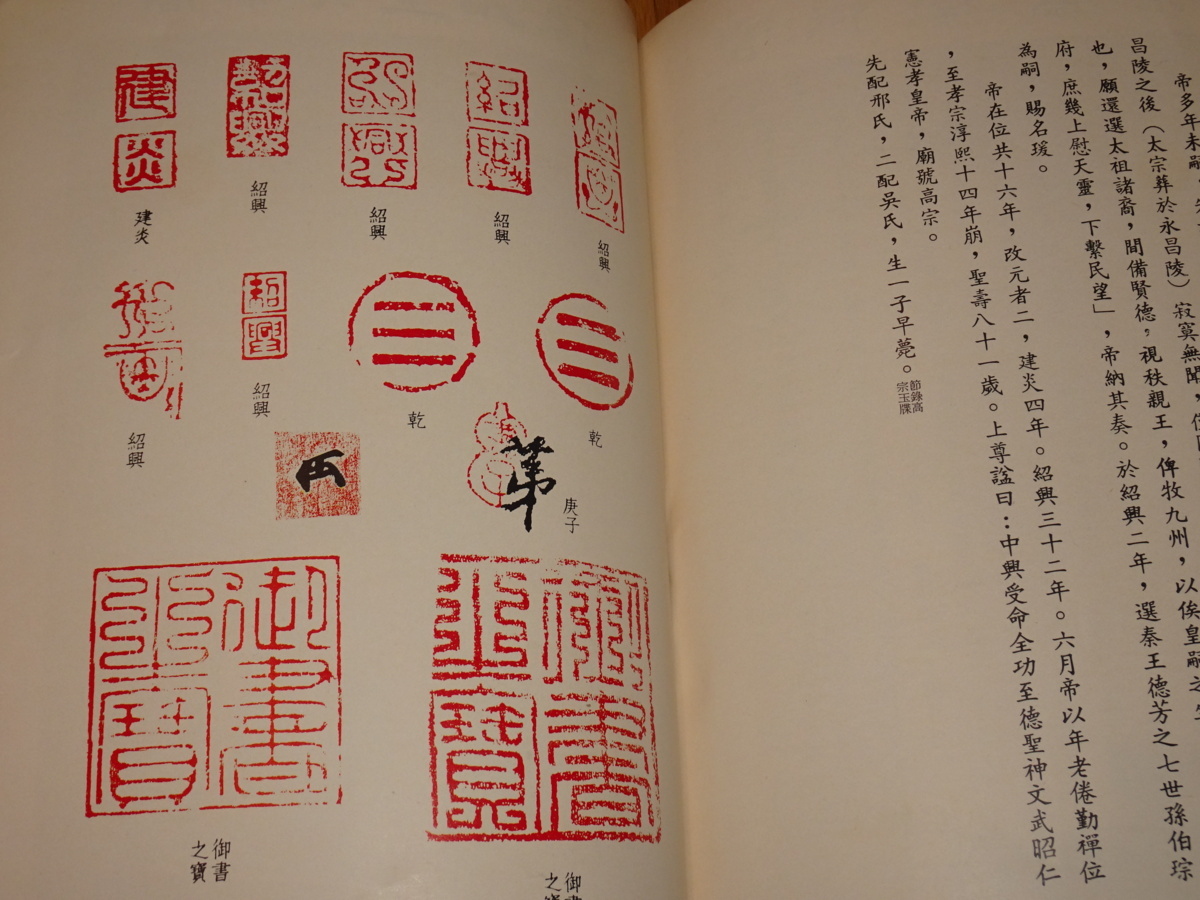 帝多年未嗣
昌陵之後（太宗葬於永昌陵）寂寞無聞，
也，願還選太祖諸裔，間備賢德，視秩親王，俾牧九州，以俟皇嗣之
府，庶幾上慰天靈，下繫民望」，帝納其奏。於紹興二年，選秦王德芳之七世孫伯琮
為嗣，賜名瑗。
帝在位共十六年，改元者二，建炎四年。紹興三十二年。六月帝以年老倦勤禪位
，至孝宗淳熙十四年崩，聖壽八十一歲。上尊謚曰：中興受命全功至德聖神文武昭仁
憲孝皇帝，廟號高宗。
先配邢氏，二配吳氏，生一子早薨。
節錄高
宗玉牒
紹興
紹興
紹興
紹興
建炎
乾
乾
紹興
紹興
第
庚子
御書
之寶
御書
之寶
建炎
紹興
紹興
紹興
御書之寶
御書之寶